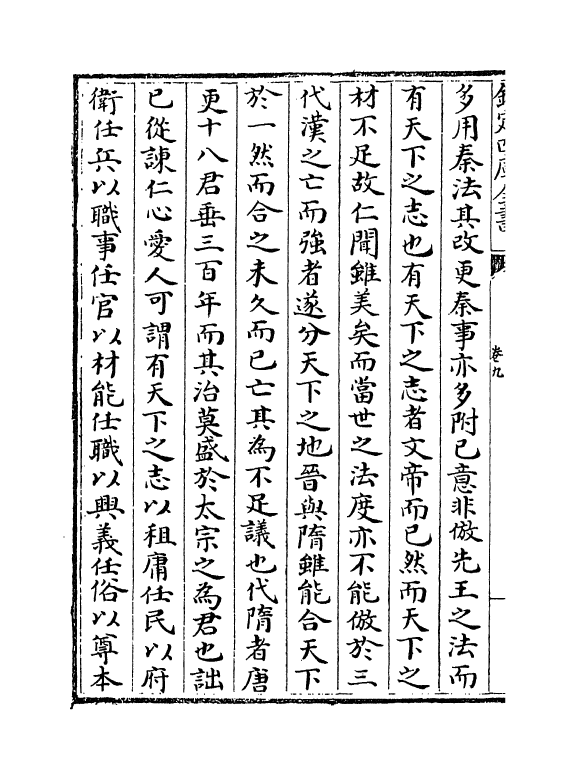 欽定四庫全書
卷九
多用秦法其改更秦事亦多附已意非倣先王之法而
有天下之志也有天下之志者文帝而已然而天下之
材不足故仁聞雖美矣而當世之法度亦不能倣於三
代漢之亡而強者遂分天下之地晉與隋雖能合天下
於一然而合之未久而已亡其為不足議也代隋者唐
更十八君垂三百年而其治莫盛於太宗之為君也詘
已從諫仁心愛人可謂有天下之志以租庸任民以府
衛任兵以職事任官以材能任職以興義任俗以尊本